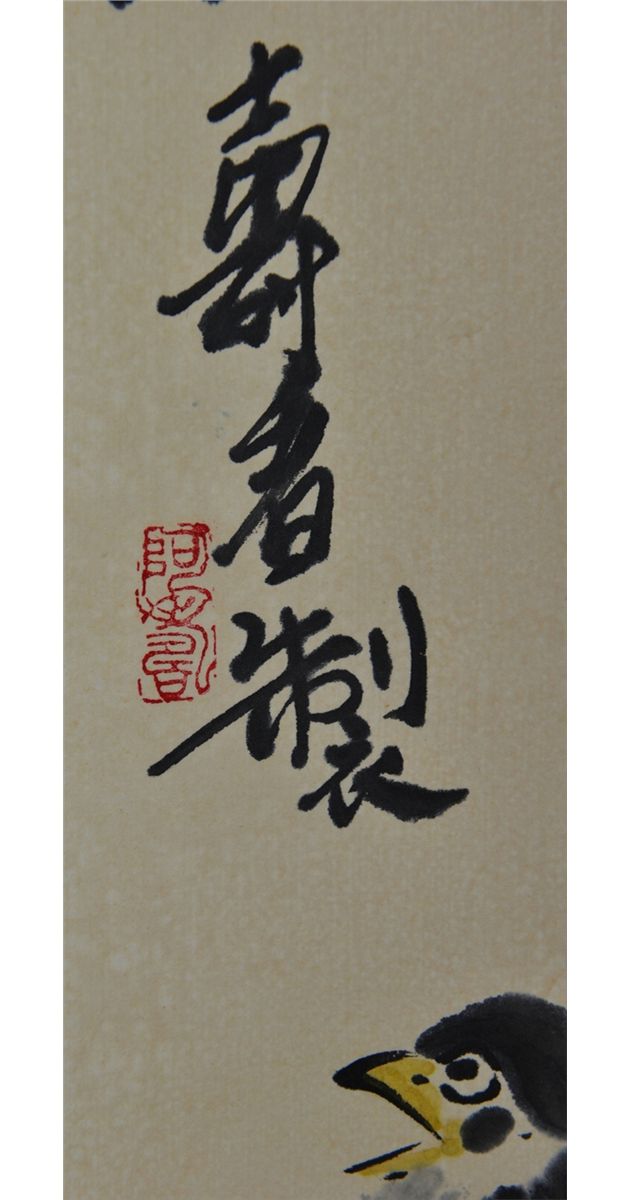 壽者製